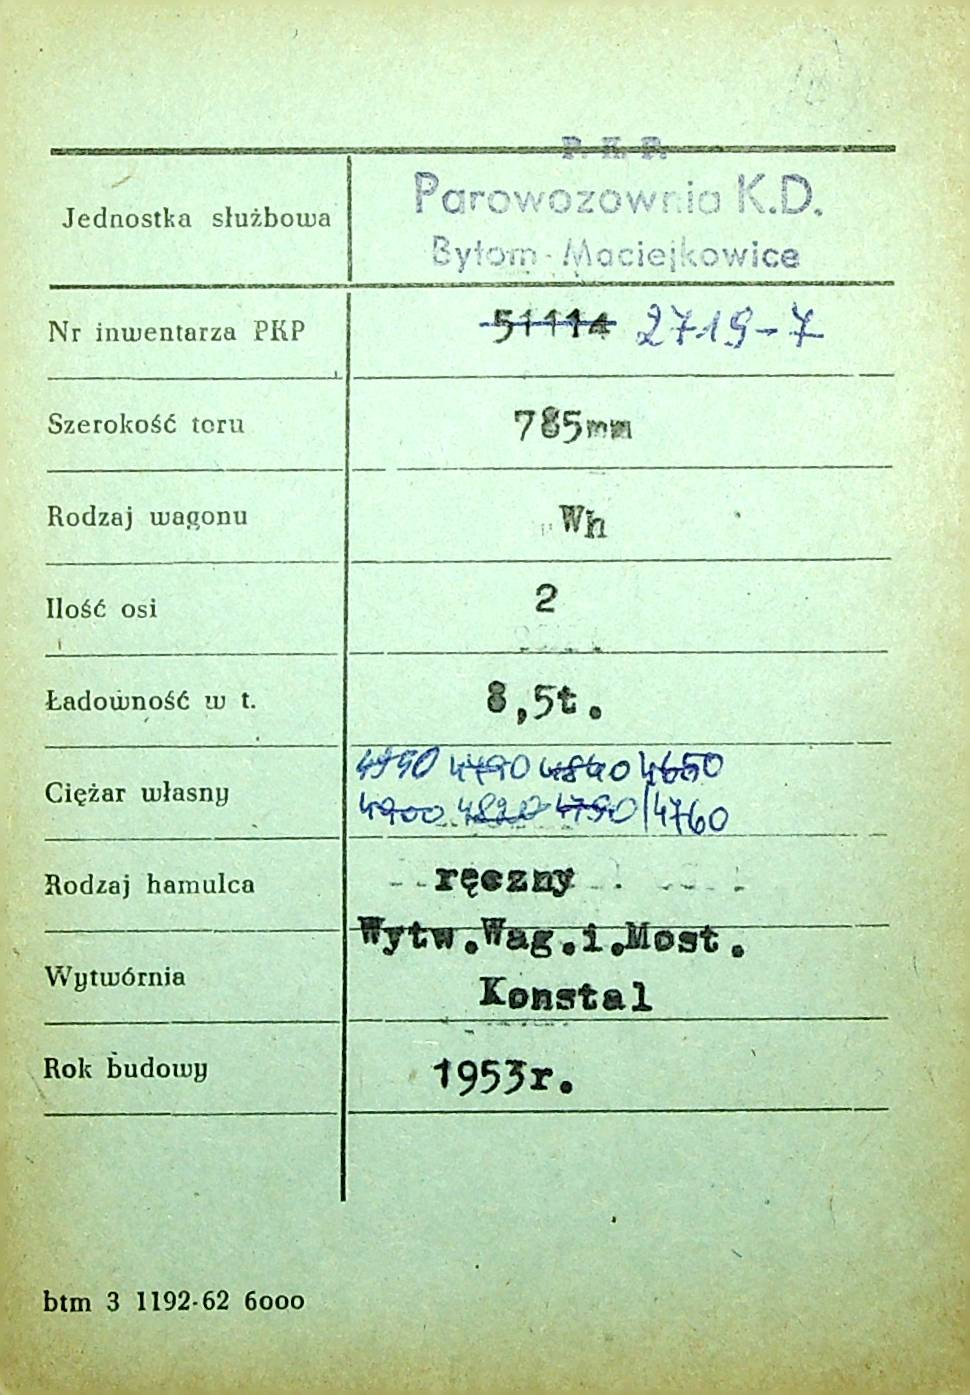 P. K. P.
Jednostka służbowa Parowozownia K.D.
Bytom - Maciejkowice
Nr inwentarza PKP 51114 2719-7
Szerokość toru 785mm
Rodzaj wagonu Wh
Ilość osi 2
Ładowność w t. 8,5t.
4950 4790 4840 4650
Ciężar własny 4900 4820 4790 4760
Rodzaj hamulca ręczny
Wytw.Wag.i.Most.
Wytwórnia Konstal
Rok budowy 1953r.
btm 3 1192-62 6000